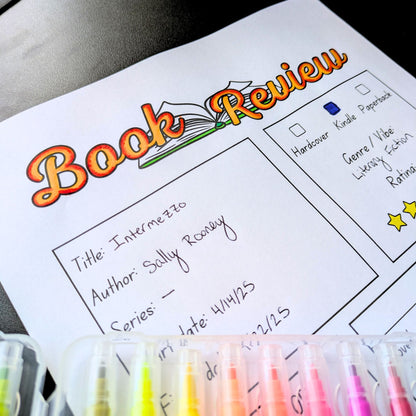 Book Review
Title: Intermezzo
Author: Sally Rooney
Series: —
date: 4/14/25
22/25
Hardcover Kindle Paperback
Genre / Vibe
Literary Fiction
Rating